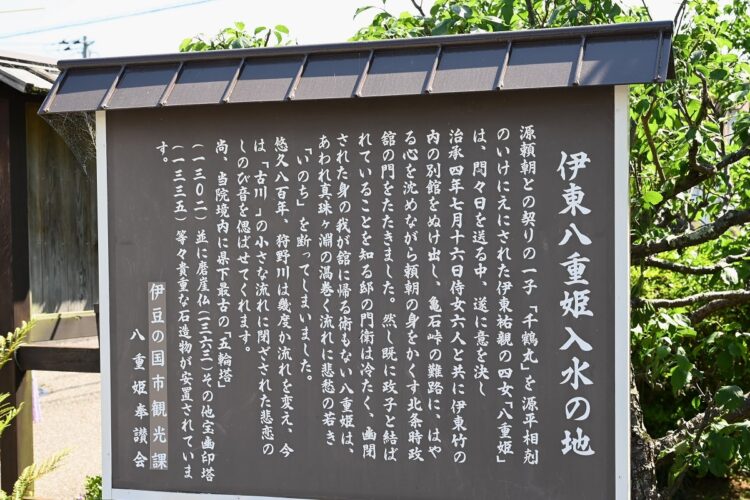 伊東八重姫入水の地
源頼朝との契りの一子「千鶴丸」を源平相剋
のいけにえにされた伊東祐親の四女「八重姫」
は、悶々日を送る中、遂に意を決し
治承四年七月十六日侍女六人と共に伊東竹の
内の別館をぬけ出し、亀石峠の難路に、はや
る心を沈めながら頼朝の身をかくす北条時政
舘の門をたたきました。然し既に政子と結ば
れていることを知る邸の門衛は冷たく、幽閉
された身の我が舘に帰る術もない八重姫は、
あわれ真珠ヶ淵の渦巻く流れに悲愁の若き
「いのち」を断ってしまいました。
悠久八百年、狩野川は幾度か流れを変え、今
は「古川」の小さな流れに閉ざされた悲恋の
しのび音を偲ばせてくれます。
尚、当院境内に県下最古の「五輪塔」
(一三〇二)並に磨崖仏(一三六三)その他宝篋印塔
(一三三五)等々貴重な石造物が安置されていま
す。
伊豆の国市観光課
八重姫奉讃会